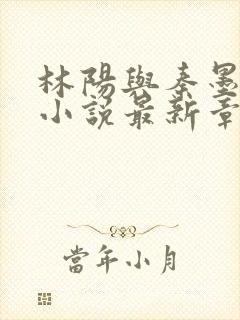 林陽與秦墨
小說最新章
當年小月